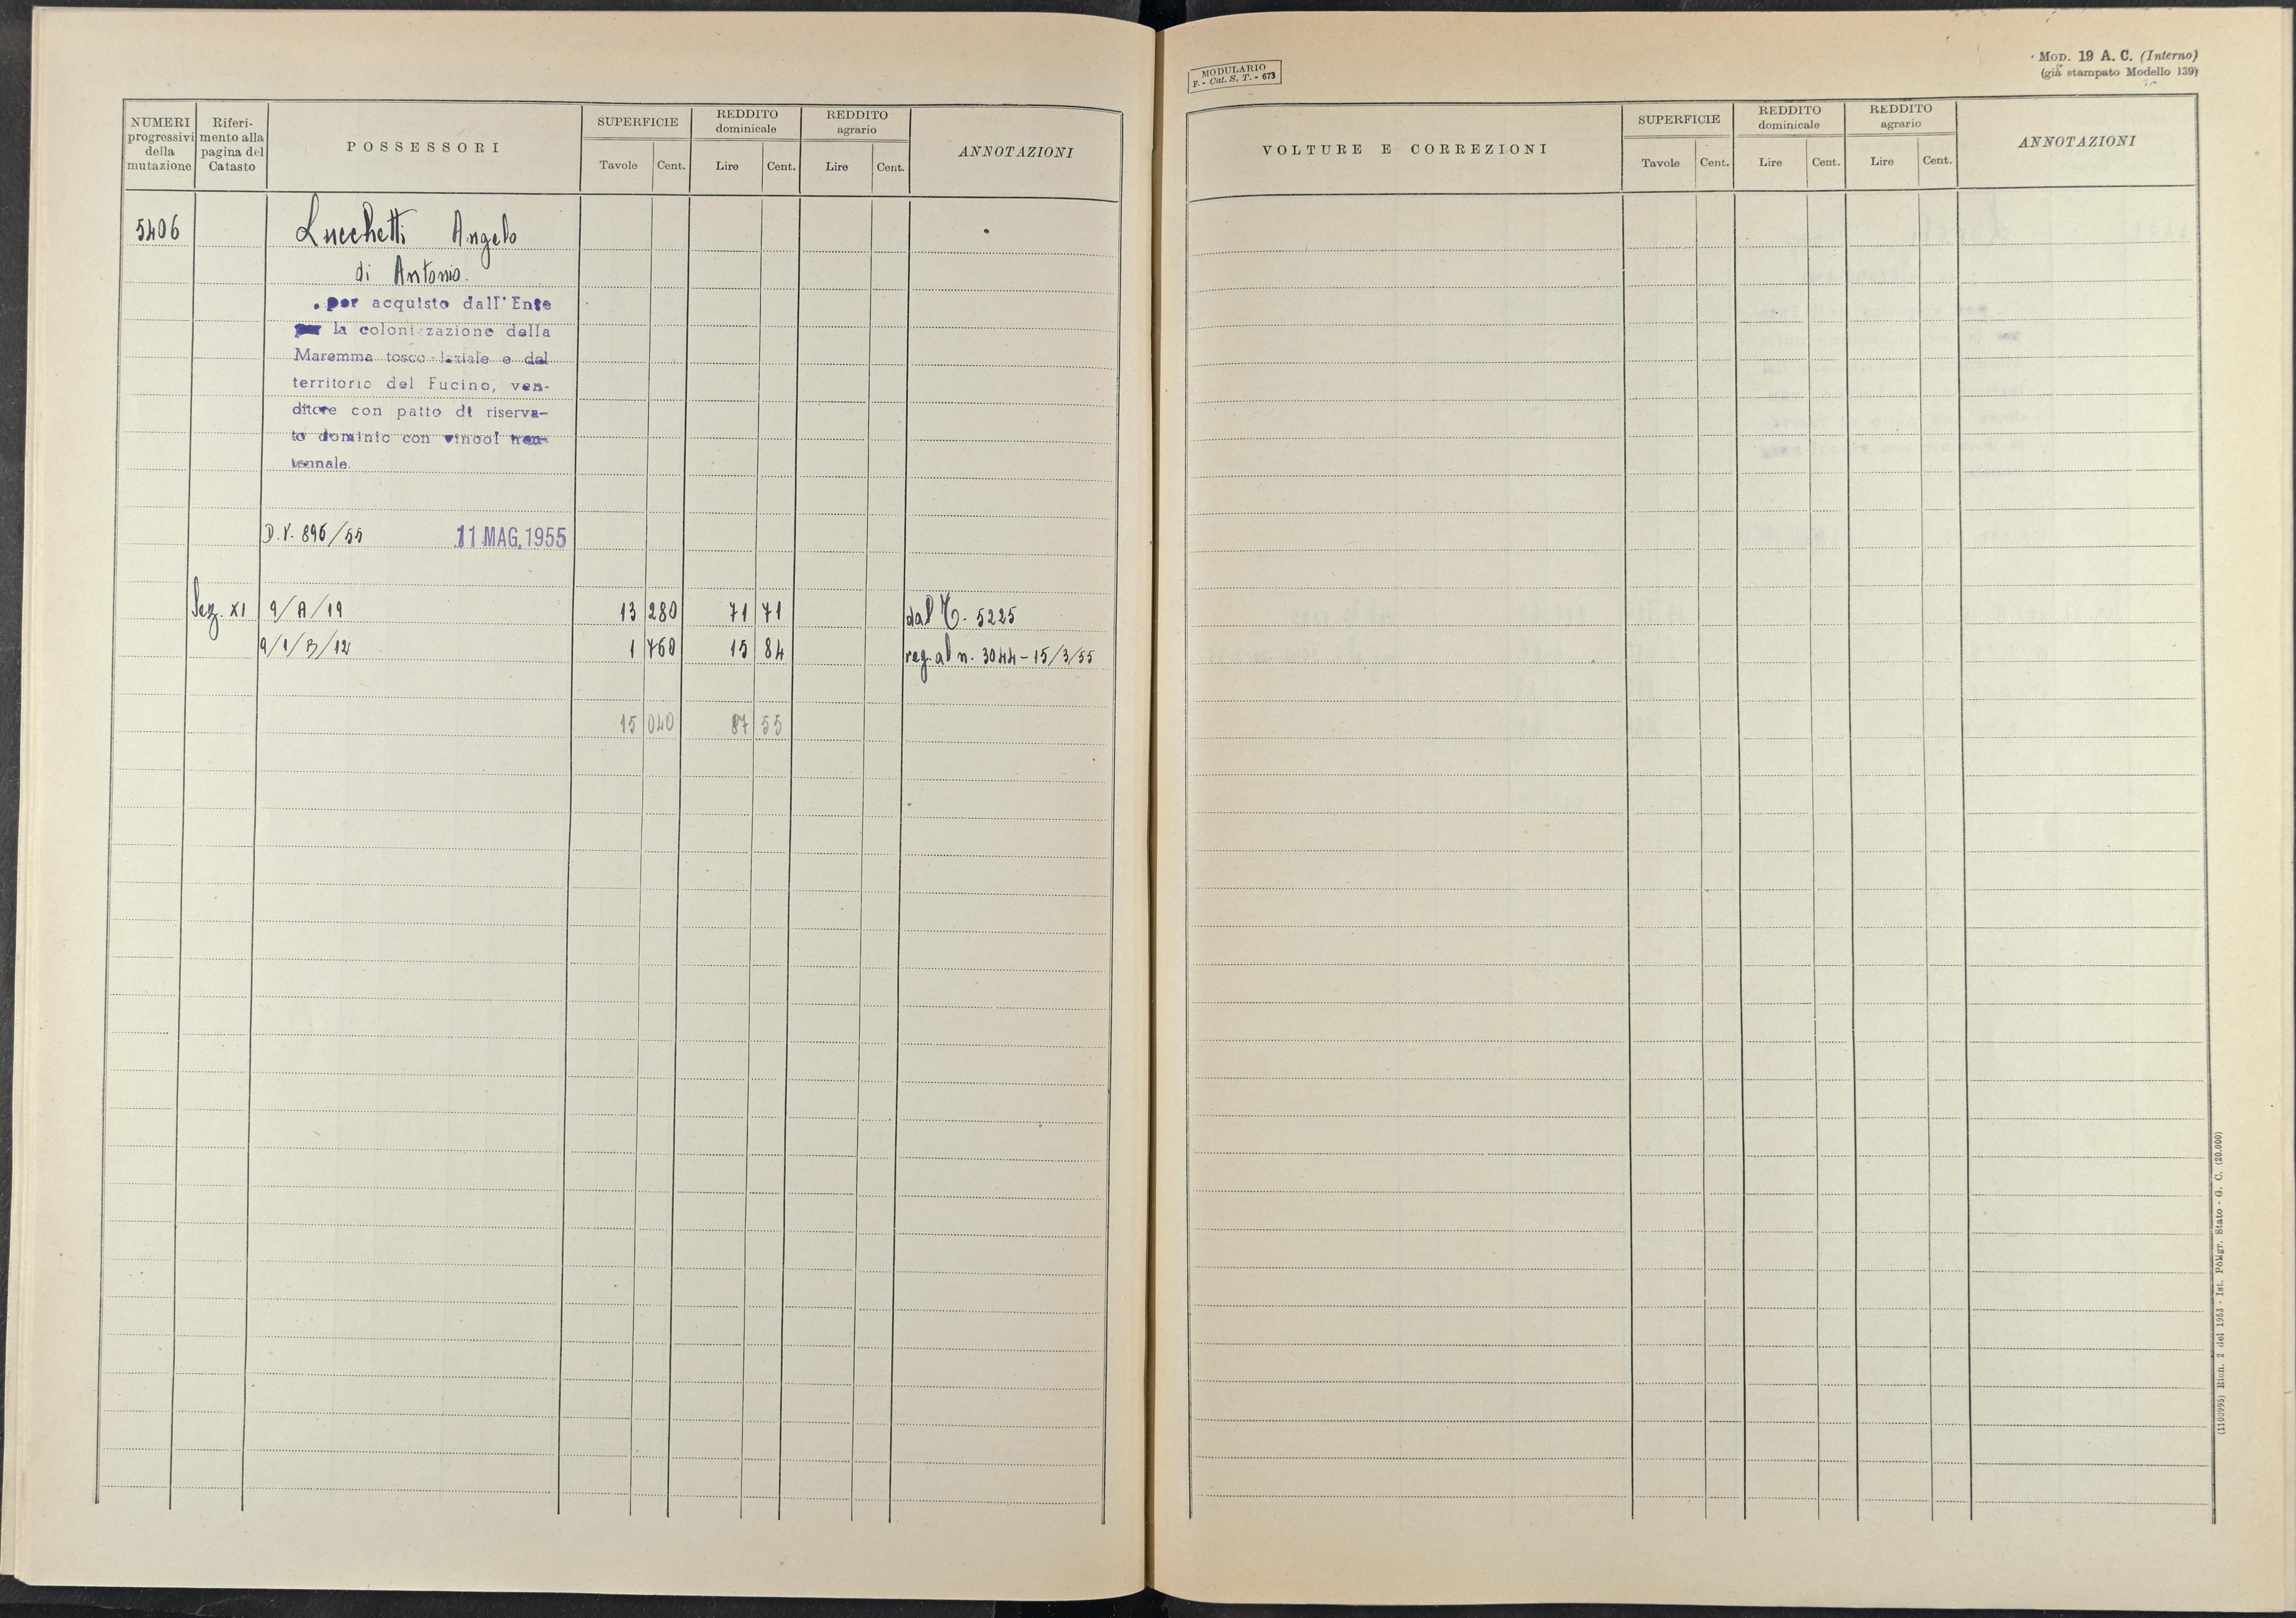 NUMERI progressivi della mutazione
Riferimento alla pagina del Catasto
POSSESSORI
SUPERFICIE
Tavole Cent.
REDDITO dominicale
Lire Cent.
REDDITO agrario
Lire Cent.
ANNOTAZIONI
5406 Lucchetti Angelo
di Antonio.
per acquisto dall'Ente
per la colonizzazione della
Maremma tosco-laziale e del
territorio del Fucino, ven-
ditore con patto di riserva-
to dominio con vincol tren-
tennale.
D.V. 896/55 11 MAG. 1955
Sez. XI 9/A/19 13 280 71 71 dal C. 5225
9/1/B/12 1 760 15 84 reg. al n. 3044-15/3/55
15 040 87 55
MODULARIO
F. - Cat. S. T. - 673
MOD. 19 A. C. (Interno)
(già stampato Modello 139)
VOLTURE E CORREZIONI
SUPERFICIE
Tavole Cent.
REDDITO dominicale
Lire Cent.
REDDITO agrario
Lire Cent.
ANNOTAZIONI
(1100995) Rich. 2 del 1953 - Ist. Poligr. Stato - G. C. (20.000)